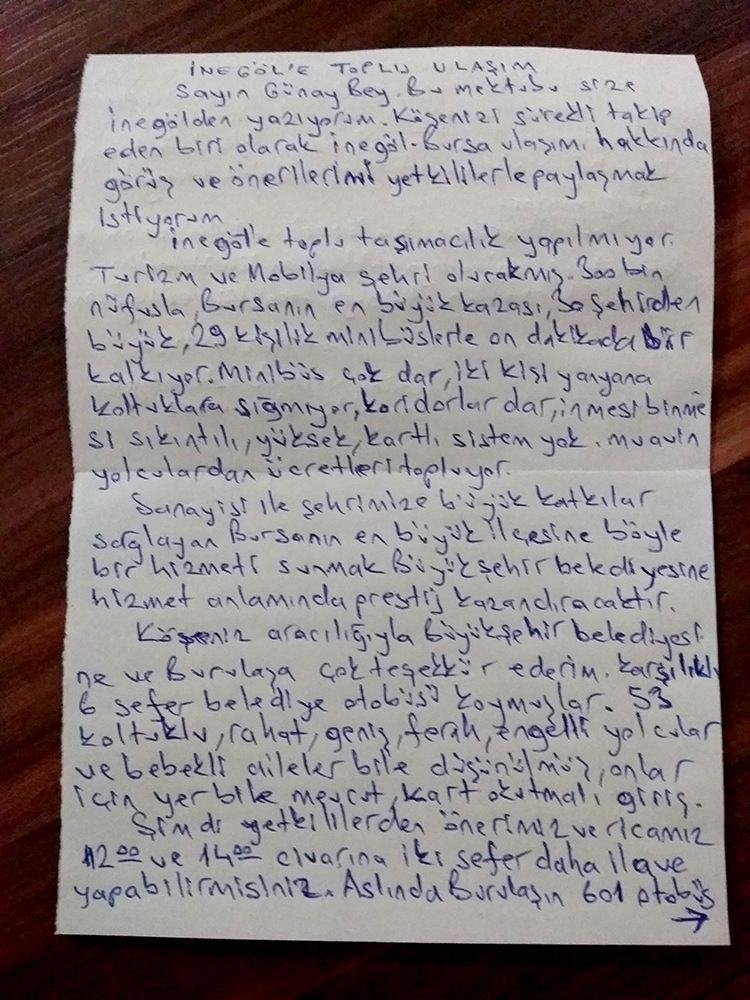 İNEGÖL'E TOPLU ULAŞIM
Sayın Günay Bey. Bu mektubu size
İnegölden yazıyorum. Köşenizi sürekli takip
eden biri olarak inegöl-Bursa ulaşımı hakkında
görüş ve önerilerimi yetkililerle paylaşmak
istiyorum
İnegöle toplu taşımacılık yapılmıyor.
Turizm ve Mobilya şehri olucakmış. 300 bin
nüfusla, Bursanın en büyük kazası, 30 şehirden
büyük, 29 kişilik minibüslerle on dakikada bir
kalkıyor. Minibüs çok dar, iki kişi yanyana
koltuklara sığmıyor, koridorlar dar, inmesi binme
si sıkıntılı, yüksek, kartlı sistem yok. muavin
yolculardan ücretleri topluyor.
Sanayisi ile şehrimize büyük katkılar
sağlayan Bursanın en büyük ilçesine böyle
bir hizmeti sunmak Büyükşehir belediyesine
hizmet anlamında prestij kazandıracaktır.
Köşeniz aracılığıyla Büyükşehir belediyesi
ne ve Burulaşa çok teşekkür ederim. Karşılıklı
6 sefer belediye otobüsü koymuşlar. 53
koltuklu, rahat, geniş, ferah, engelli yolcular
ve bebekli aileler bile düşünülmüş, onlar
için yer bile mevcut, kart okutmalı giriş.
Şimdi yetkililerden önerimiz ve ricamız
12⁰⁰ ve 14⁰⁰ civarına iki sefer daha ilave
yapabilirmisiniz. Aslında Burulaşın 601 otobüs
→